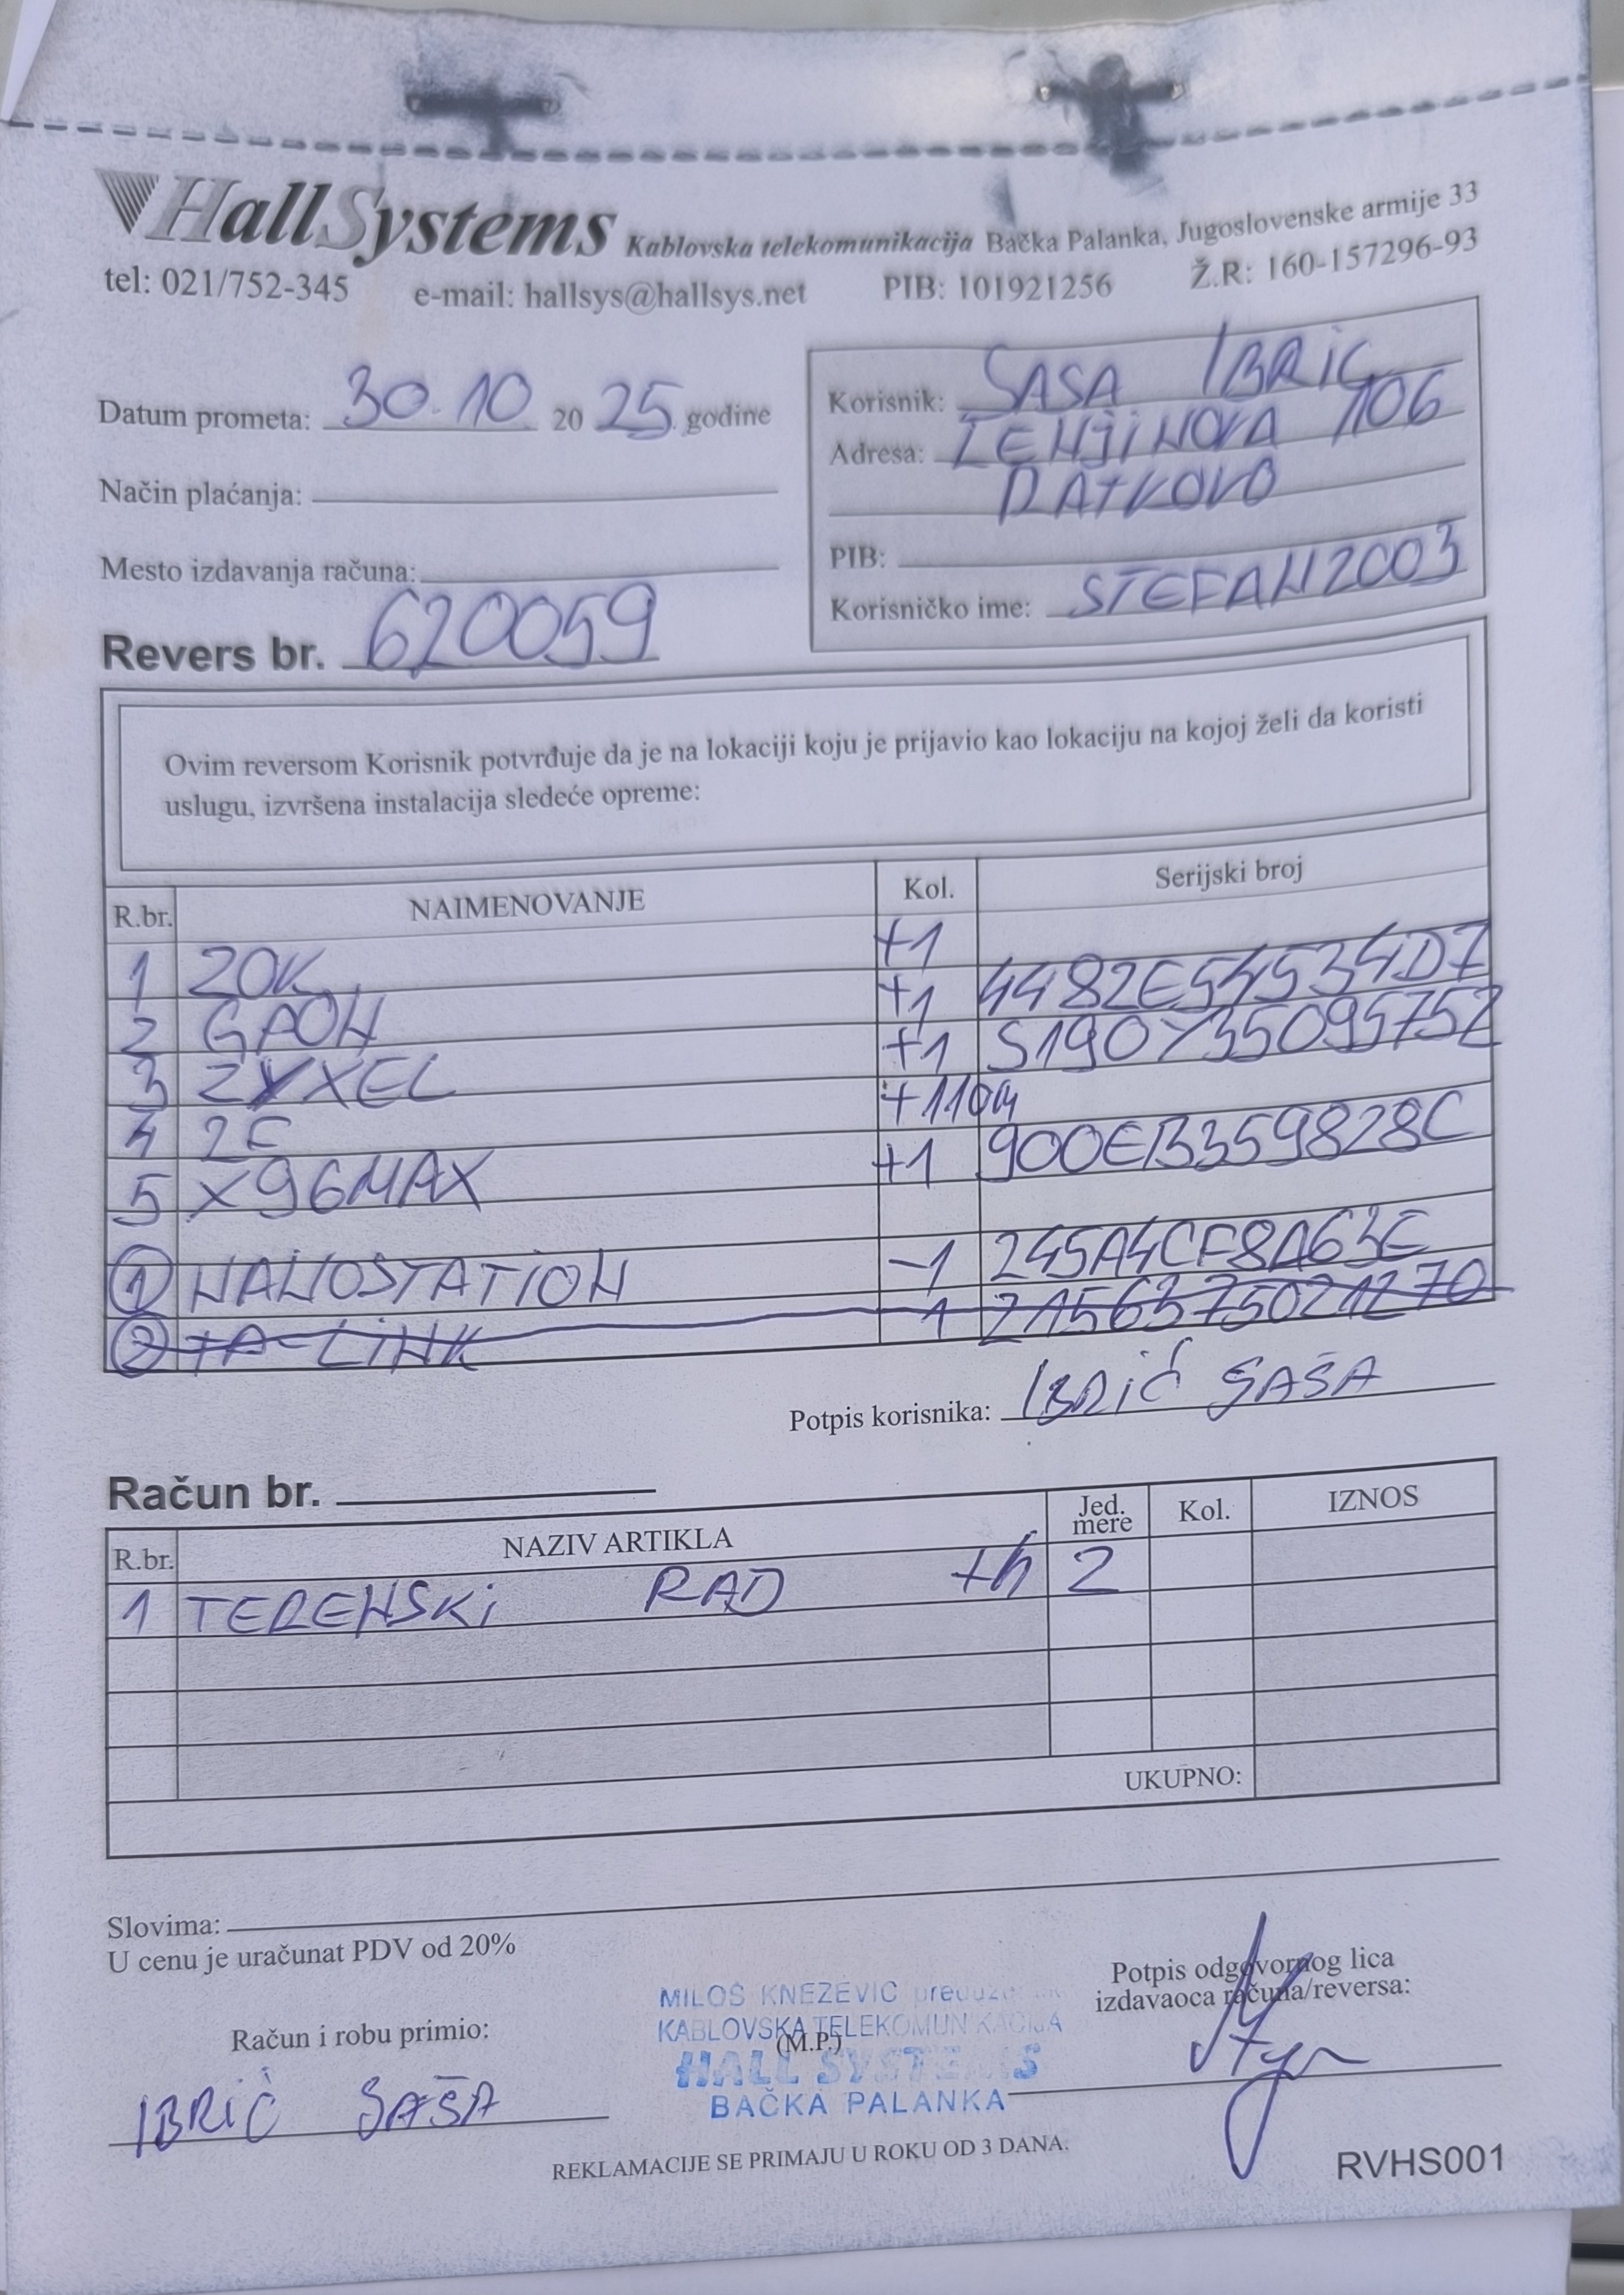 HallSystems Kablovska telekomunikacija Bačka Palanka, Jugoslovenske armije 33
tel: 021/752-345 e-mail: hallsys@hallsys.net PIB: 101921256 Ž.R: 160-157296-93
Datum prometa: 30.10 20 25 godine
Način plaćanja:
Mesto izdavanja računa:
Revers br. 620059
Korisnik: SASA IBRIC
Adresa: LENJINOVA 106
RATKOVO
PIB:
Korisničko ime: STEFAN2003
Ovim reversom Korisnik potvrđuje da je na lokaciji koju je prijavio kao lokaciju na kojoj želi da koristi
uslugu, izvršena instalacija sledeće opreme:
R.br. NAIMENOVANJE Kol. Serijski broj
1 ZOK +1
2 GPON +1 4482E54534D7
3 ZYXEL +1 S190Y35095752
4 2F +110m
5 X96MAX +1 900EB359828C
1 NANOSTATION -1 245A4CF8A63E
2 TP-LINK -1 2156375021270
Potpis korisnika: IBRIĆ SAŠA
Račun br.
R.br. NAZIV ARTIKLA Jed. mere Kol. IZNOS
1 TERENSKI RAD +h 2
UKUPNO:
Slovima:
U cenu je uračunat PDV od 20%
Račun i robu primio:
IBRIĆ SAŠA
MILOŠ KNEŽEVIĆ preduz
KABLOVSKA TELEKOMUNIKACIJA
(M.P.)
HALL SYSTEMS
BAČKA PALANKA
Potpis odgovornog lica
izdavaoca računa/reversa:
REKLAMACIJE SE PRIMAJU U ROKU OD 3 DANA.
RVHS001